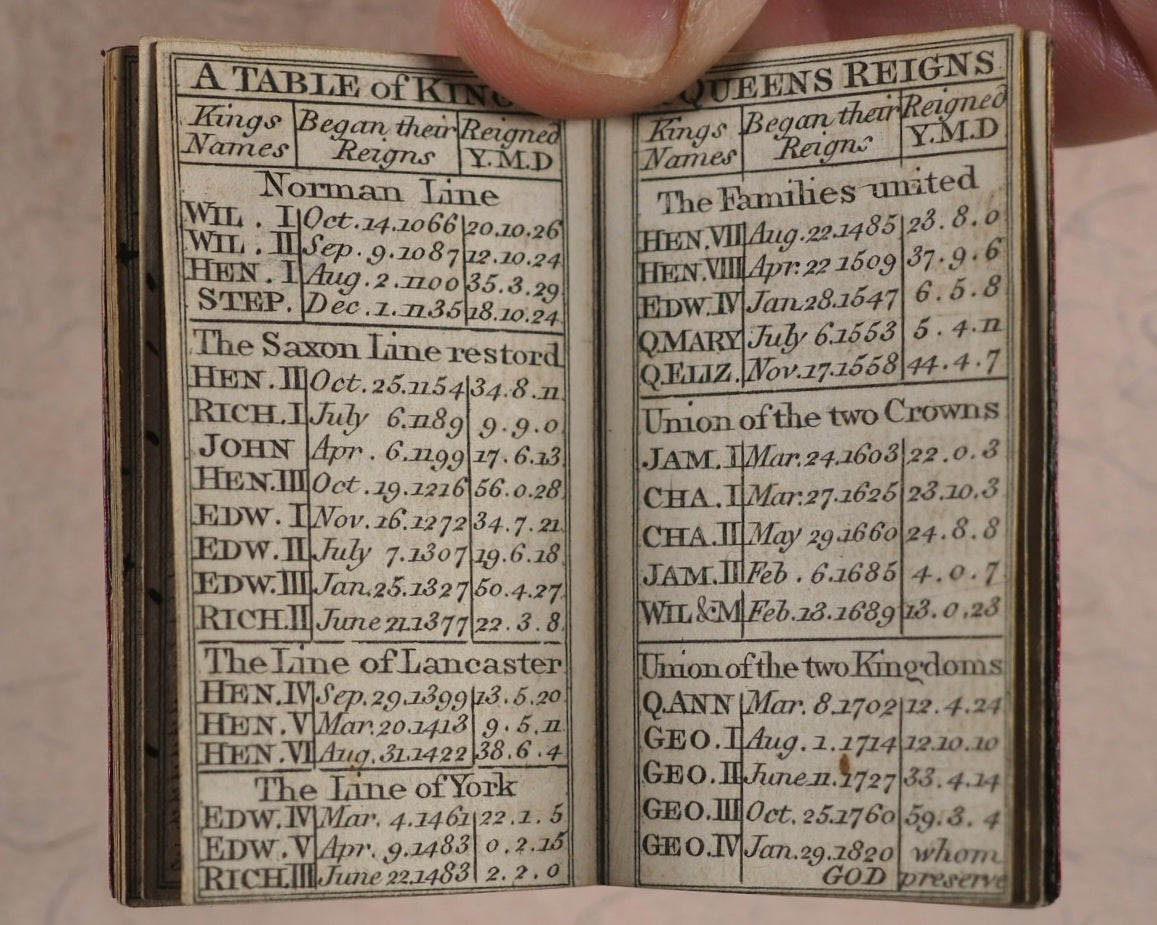 A TABLE of KING
Kings Names | Began their Reigns | Reigned Y.M.D
Norman Line
WIL . I Oct.14.1066 20.10.26
WIL . II Sep.9.1087 12.10.24
HEN. I Aug.2.1100 35.3.29
STEP. Dec.1.1135 18.10.24
The Saxon Line restord
HEN. II Oct.25.1154 34.8.11
RICH. I July 6.1189 9.9.0
JOHN Apr. 6.1199 17.6.13
HEN. III Oct.19.1216 56.0.28
EDW. I Nov.16.1272 34.7.21
EDW. II July 7.1307 19.6.18
EDW. III Jan.25.1327 50.4.27
RICH. II June 21.1377 22.3.8
The Line of Lancaster
HEN. IV Sep.29.1399 13.5.20
HEN. V Mar.20.1413 9.5.11
HEN. VI Aug.31.1422 38.6.4
The Line of York
EDW. IV Mar. 4.1461 22.1.5
EDW. V Apr. 9.1483 0.2.15
RICH. III June 22.1483 2.2.0
QUEENS REIGNS
Kings Names | Began their Reigns | Reigned Y.M.D
The Families united
HEN. VII Aug.22.1485 23.8.0
HEN. VIII Apr.22 1509 37.9.6
EDW. IV Jan.28.1547 6.5.8
Q.MARY July 6.1553 5.4.11
Q.ELIZ. Nov.17.1558 44.4.7
Union of the two Crowns
JAM. I Mar.24.1603 22.0.3
CHA. I Mar.27.1625 23.10.3
CHA. II May 29.1660 24.8.8
JAM. II Feb. 6.1685 4.0.7
WIL&M Feb.13.1689 13.0.23
Union of the two Kingdoms
Q.ANN Mar. 8.1702 12.4.24
GEO. I Aug. 1.1714 12.10.10
GEO. II June 11.1727 33.4.14
GEO. III Oct. 25.1760 59.3.4
GEO. IV Jan.29.1820 whom
GOD preserve